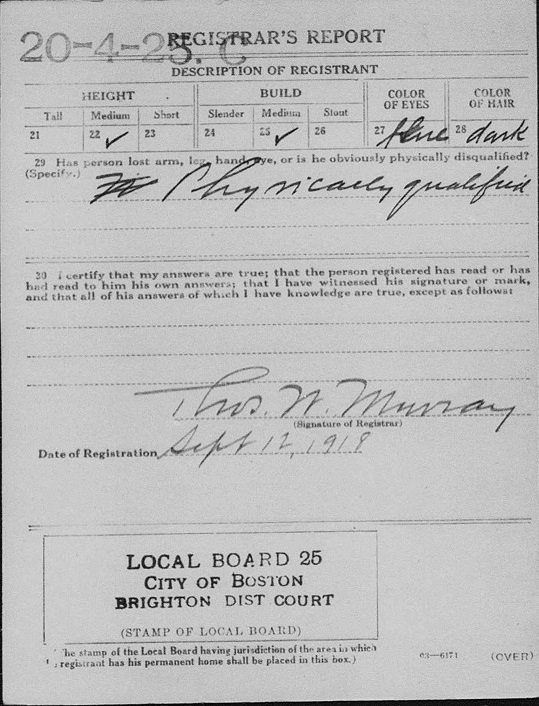 20-4-25. C
REGISTRAR'S REPORT
DESCRIPTION OF REGISTRANT
HEIGHT BUILD COLOR OF EYES COLOR OF HAIR
Tall Medium Short Slender Medium Stout
21 22 ✓ 23 24 25 ✓ 26 27 blue 28 dark
29 Has person lost arm, leg, hand, eye, or is he obviously physically disqualified?
(Specify.) Physically qualified
30 I certify that my answers are true; that the person registered has read or has
had read to him his own answers; that I have witnessed his signature or mark,
and that all of his answers of which I have knowledge are true, except as follows:
Thos. W. Murray
(Signature of Registrar)
Date of Registration Sept 12, 1918
LOCAL BOARD 25
CITY OF BOSTON
BRIGHTON DIST COURT
(STAMP OF LOCAL BOARD)
The stamp of the Local Board having jurisdiction of the area in which
registrant has his permanent home shall be placed in this box.)
03—6171 (OVER)